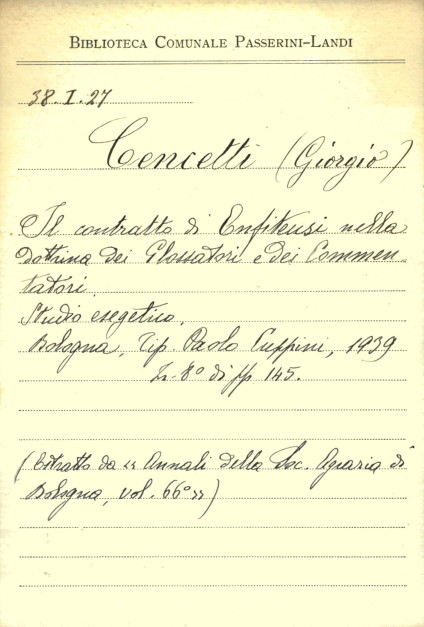 BIBLIOTECA COMUNALE PASSERINI-LANDI
38.I.27
Cencetti (Giorgio)
Il contratto di Enfiteusi nella
dottrina dei Glossatori e dei Commen-
tatori.
Studio esegetico.
Bologna, Tip. Paolo Cuppini, 1939
In-8° di pp 145.
(Estratto da "Annali della Soc. Agraria di
Bologna, vol. 66°")